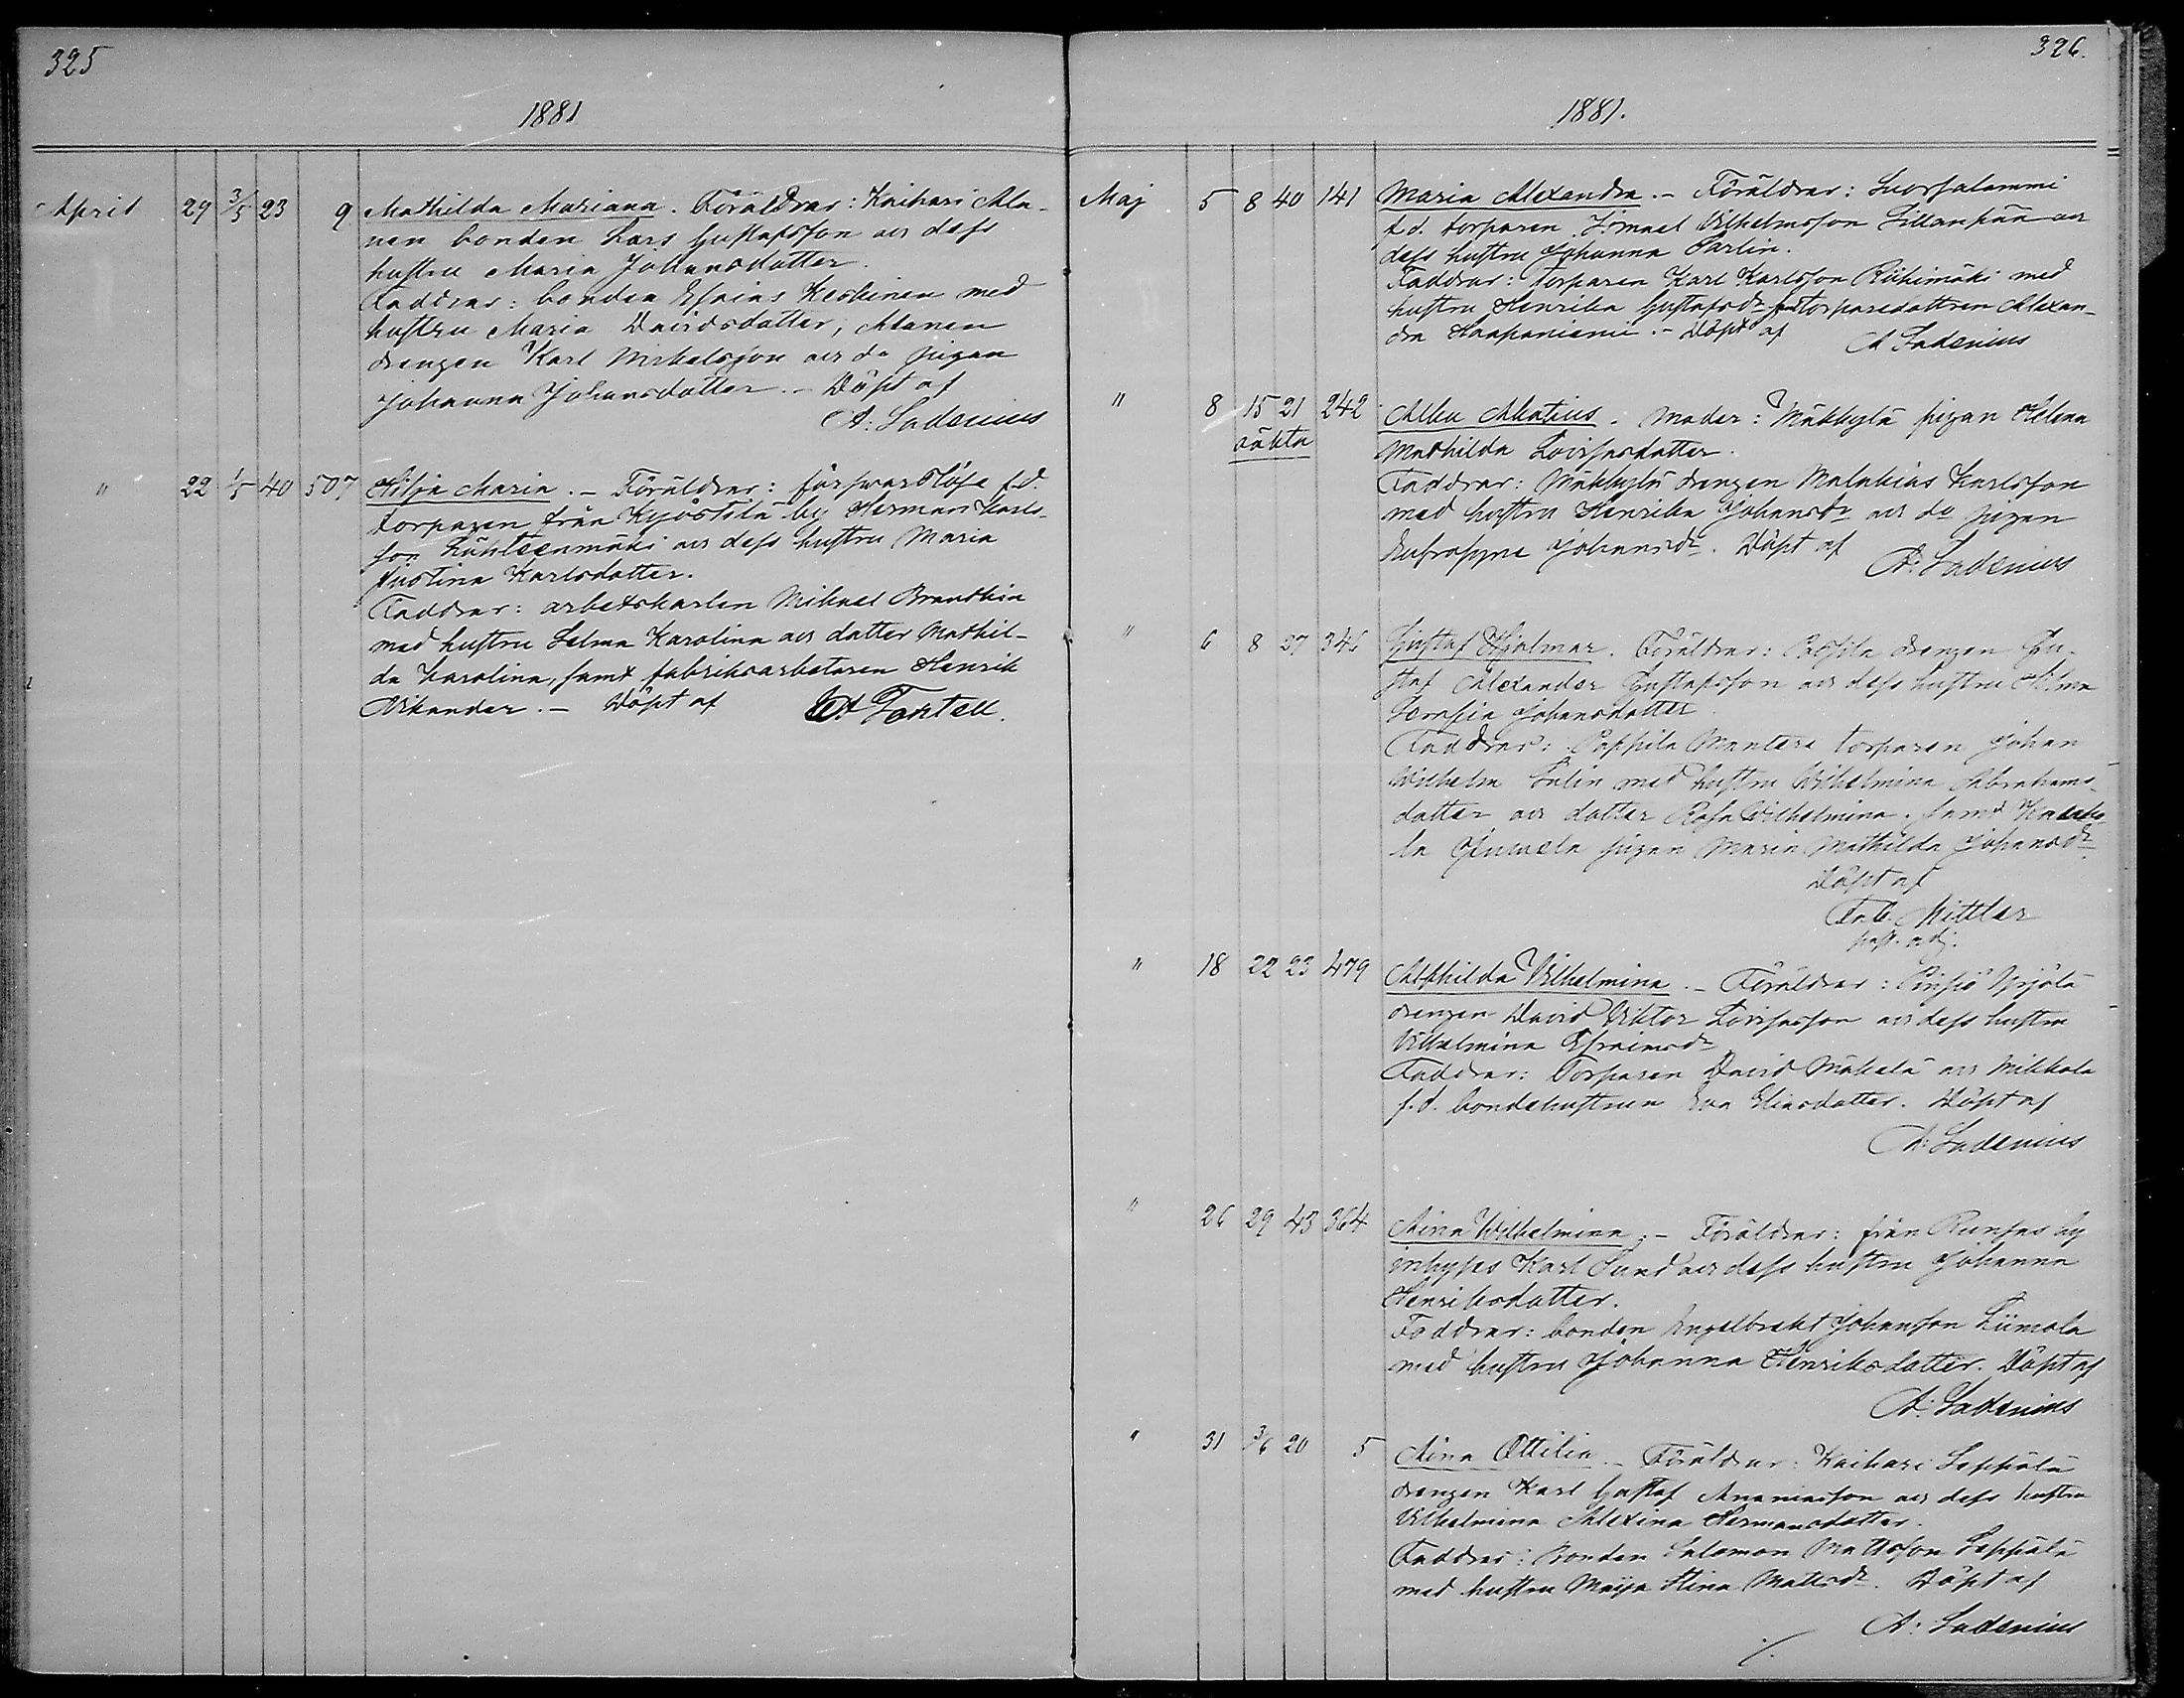 325
1881
April 29 3/5 23 9 Mathilda Mariana. Föräldrar: Kaihari Ala-
nen bonden Lars Gustafsson och dess
hustru Maria Johansdotter.
Faddrar: bonden Esaias Keskinen med
hustru Maria Davidsdotter, Alanen
drengen Karl Mikelsson och do pigan
Johanna Johansdotter. - Döpt af
A: Ladenius
" 22 1/5 40 507 Hilja Maria. - Föräldrar: försvarslöse f.d.
torparen från Kyöstilä by Herman Karls-
son Lähteenmäki och dess hustru Maria
Justina Karlsdotter.
Faddrar: arbetskarlen Mikael Brandkin
med hustru Selma Karolina och dotter Mathil-
da Karolina, samt fabriksarbetaren Henrik
Vikander. - Döpt af A Tontell.
326.
1881.
Maj 5 8 40 141 Maria Alexandra. - Föräldrar: Suorsalammi
f.d. torparen Ismael Vilhelmsson Sillanpää och
dess hustru Johanna Parlin.
Faddrar: Torparen Karl Karlsson Riihimäki med
hustru Henrika Gustafsdr torparedottren Alexan-
dra Haapaniemi. - Döpt af A Ladenius
" 8 15 21 242 Moder: Mäkkylä pigan Helena
oäkta
Mathilda Lovisasdotter.
Faddrar: Mäkkylä drengen Malakias Karlsson
med hustru Henrika Johansdr och do pigan
Eufrosyne Johansdr. Döpt af A: Ladenius
" 6 8 27 346 Gustaf Hjalmar. Föräldrar: Pasila drengen Gu-
staf Alexander Gustafsson och dess hustru Hilma
Serafia Johansdotter.
Faddrar: Pappila Mantere torparen Johan
Vilhelm Salin med hustru Vilhelmina Abrahams-
dotter och dotter Rosa Vilhelmina, samt
la pigan Maria Mathilda Johansdr
Döpt af
Mittler
past. adj.
" 18 22 23 479 Alfhilda Vilhelmina. - Föräldrar: Pinsiö Yrjölä
drengen David Viktor Lovisasson och dess hustru
Vilhelmina Efraimsdr
Faddrar: Torparen David Mäkelä och Mikkola
f.d. bondehustrun Eva Eliasdotter. Döpt af
A: Ladenius
" 26 29 43 364 Aina Wilhelmina. - Föräldrar: från Runsas by
inhyses Karl Sund och dess hustru Johanna
Henriksdotter.
Faddrar: bonden Engelbrekt Johansson Liimola
med hustru Johanna Henriksdotter. Döpt af
A: Ladenius
" 31 3/6 20 5 Aina Ottilia. - Föräldrar: Kaihari Seppälä
drengen Karl Gustaf Ananiasson och dess hustru
Vilhelmina Alexina Hermansdotter.
Faddrar: Bonden Salomon Mattsson Seppälä
med hustru Maija Stina Mattsdr. Döpt af
A: Ladenius